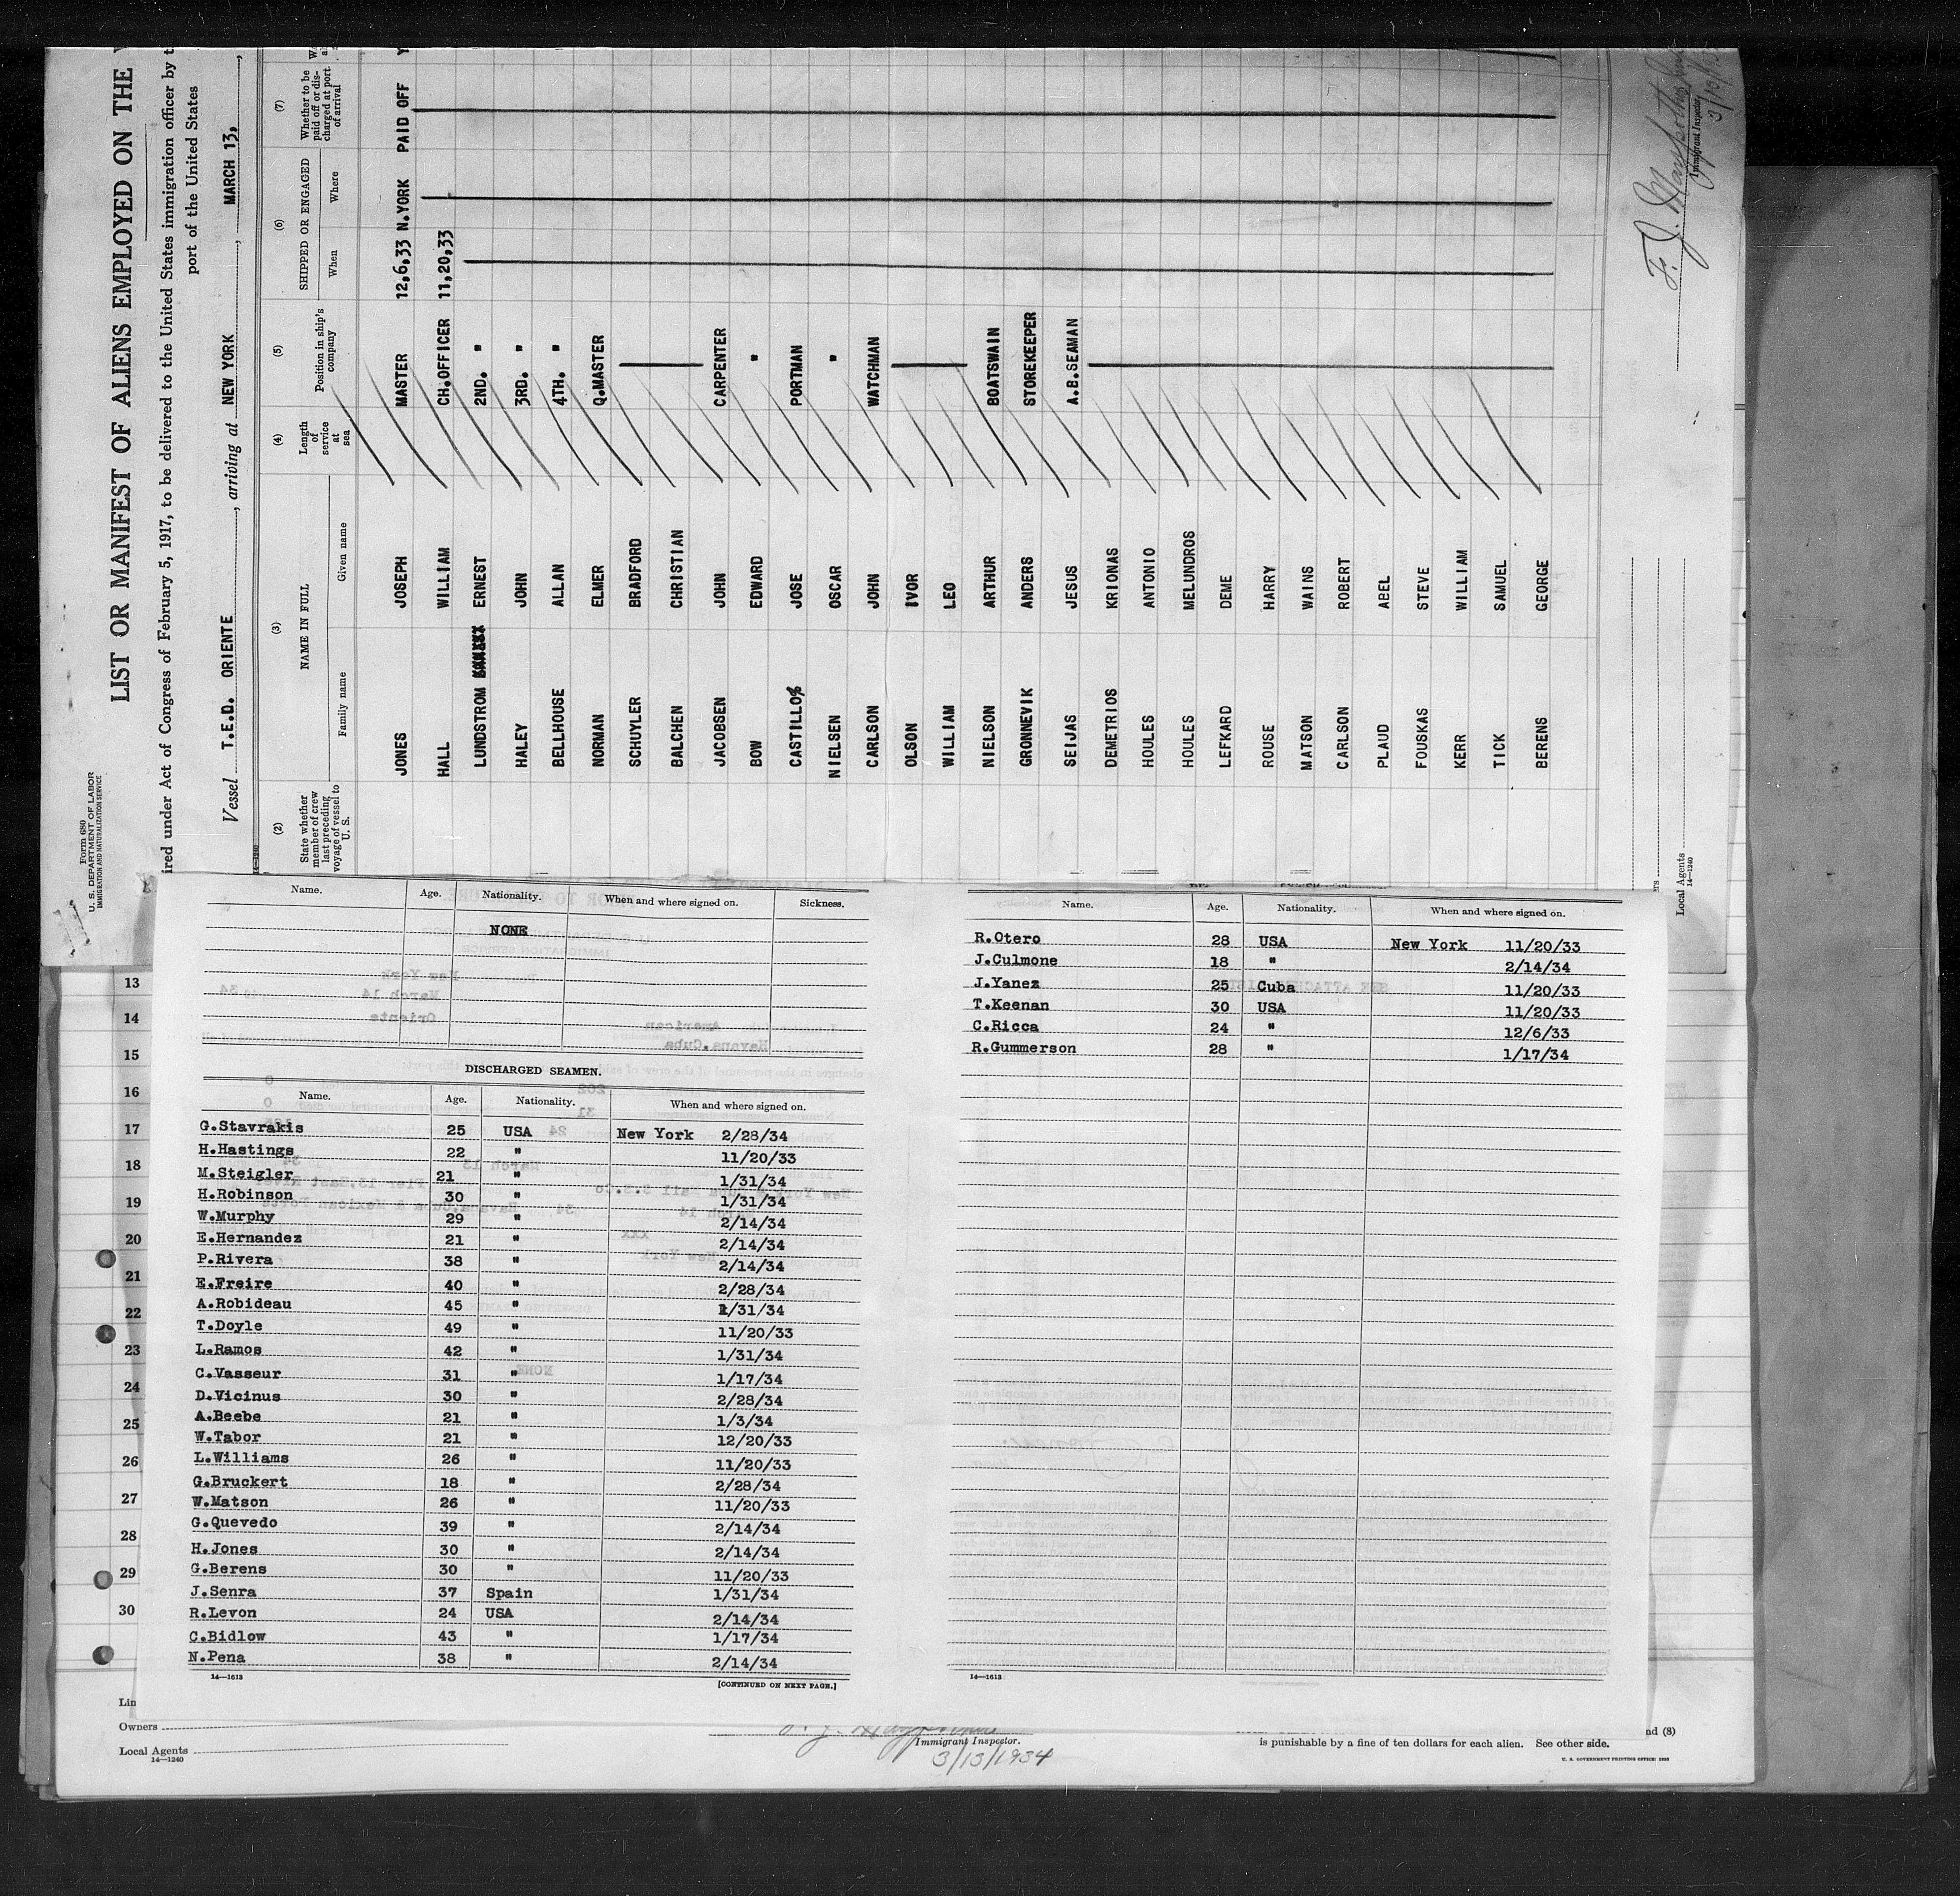 Form 680
U. S. DEPARTMENT OF LABOR
IMMIGRATION AND NATURALIZATION SERVICE
LIST OR MANIFEST OF ALIENS EMPLOYED ON THE
ired under Act of Congress of February 5, 1917, to be delivered to the United States immigration officer by t
port of the United States
Vessel T.E.D. ORIENTE, arriving at NEW YORK, MARCH 13,
(2) (3) (4) (5) (6) (7)
State whether member of crew last preceding voyage of vessel to U. S.
NAME IN FULL
Family name Given name
Length of service at sea
Position in ship's company
SHIPPED OR ENGAGED
When Where
Whether to be paid off or discharged at port of arrival
JONES JOSEPH MASTER 12,6,33 N.YORK PAID OFF Y
HALL WILLIAM CH.OFFICER 11,20,33
LUNDSTROM ERNEST 2ND. "
HALEY JOHN 3RD. "
BELLHOUSE ALLAN 4TH. "
NORMAN ELMER Q.MASTER
SCHUYLER BRADFORD
BALCHEN CHRISTIAN
JACOBSEN JOHN CARPENTER
BOW EDWARD "
CASTILLO JOSE PORTMAN
NIELSEN OSCAR "
CARLSON JOHN WATCHMAN
OLSON IVOR
WILLIAM LEO
NIELSON ARTHUR BOATSWAIN
GRONNEVIK ANDERS STOREKEEPER
SEIJAS JESUS A.B.SEAMAN
DEMETRIOS KRIONAS
HOULES ANTONIO
HOULES MELUNDROS
LEFKARD DEME
ROUSE HARRY
MATSON WAINS
CARLSON ROBERT
PLAUD ABEL
FOUSKAS STEVE
KERR WILLIAM
TICK SAMUEL
BERENS GEORGE
Immigrant Inspector.
Local Agents
14—1240
Name. Age. Nationality. When and where signed on. Sickness.
NONE
DISCHARGED SEAMEN.
Name. Age. Nationality. When and where signed on.
G.Stavrakis 25 USA New York 2/28/34
H.Hastings 22 " 11/20/33
M.Steigler 21 " 1/31/34
H.Robinson 30 " 1/31/34
W.Murphy 29 " 2/14/34
E.Hernandez 21 " 2/14/34
P.Rivera 38 " 2/14/34
E.Freire 40 " 2/28/34
A.Robideau 45 " 1/31/34
T.Doyle 49 " 11/20/33
L.Ramos 42 " 1/31/34
C.Vasseur 31 " 1/17/34
D.Vicinus 30 " 2/28/34
A.Beebe 21 " 1/3/34
W.Tabor 21 " 12/20/33
L.Williams 26 " 11/20/33
G.Bruckert 18 " 2/28/34
W.Matson 26 " 11/20/33
G.Quevedo 39 " 2/14/34
H.Jones 30 " 2/14/34
G.Berens 30 " 11/20/33
J.Senra 37 Spain 1/31/34
R.Levon 24 USA 2/14/34
C.Bidlow 43 " 1/17/34
N.Pena 38 " 2/14/34
14—1613
[CONTINUED ON NEXT PAGE.]
Name. Age. Nationality. When and where signed on.
R.Otero 28 USA New York 11/20/33
J.Culmone 18 " 2/14/34
J.Yanez 25 Cuba 11/20/33
T.Keenan 30 USA 11/20/33
C.Ricca 24 " 12/6/33
R.Gummerson 28 " 1/17/34
14—1613
13
14
15
16
17
18
19
20
21
22
23
24
25
26
27
28
29
30
Lin
Owners
Local Agents
14—1240
Immigrant Inspector.
3/13/1934
nd (8)
is punishable by a fine of ten dollars for each alien. See other side.
U. S. GOVERNMENT PRINTING OFFICE: 1933